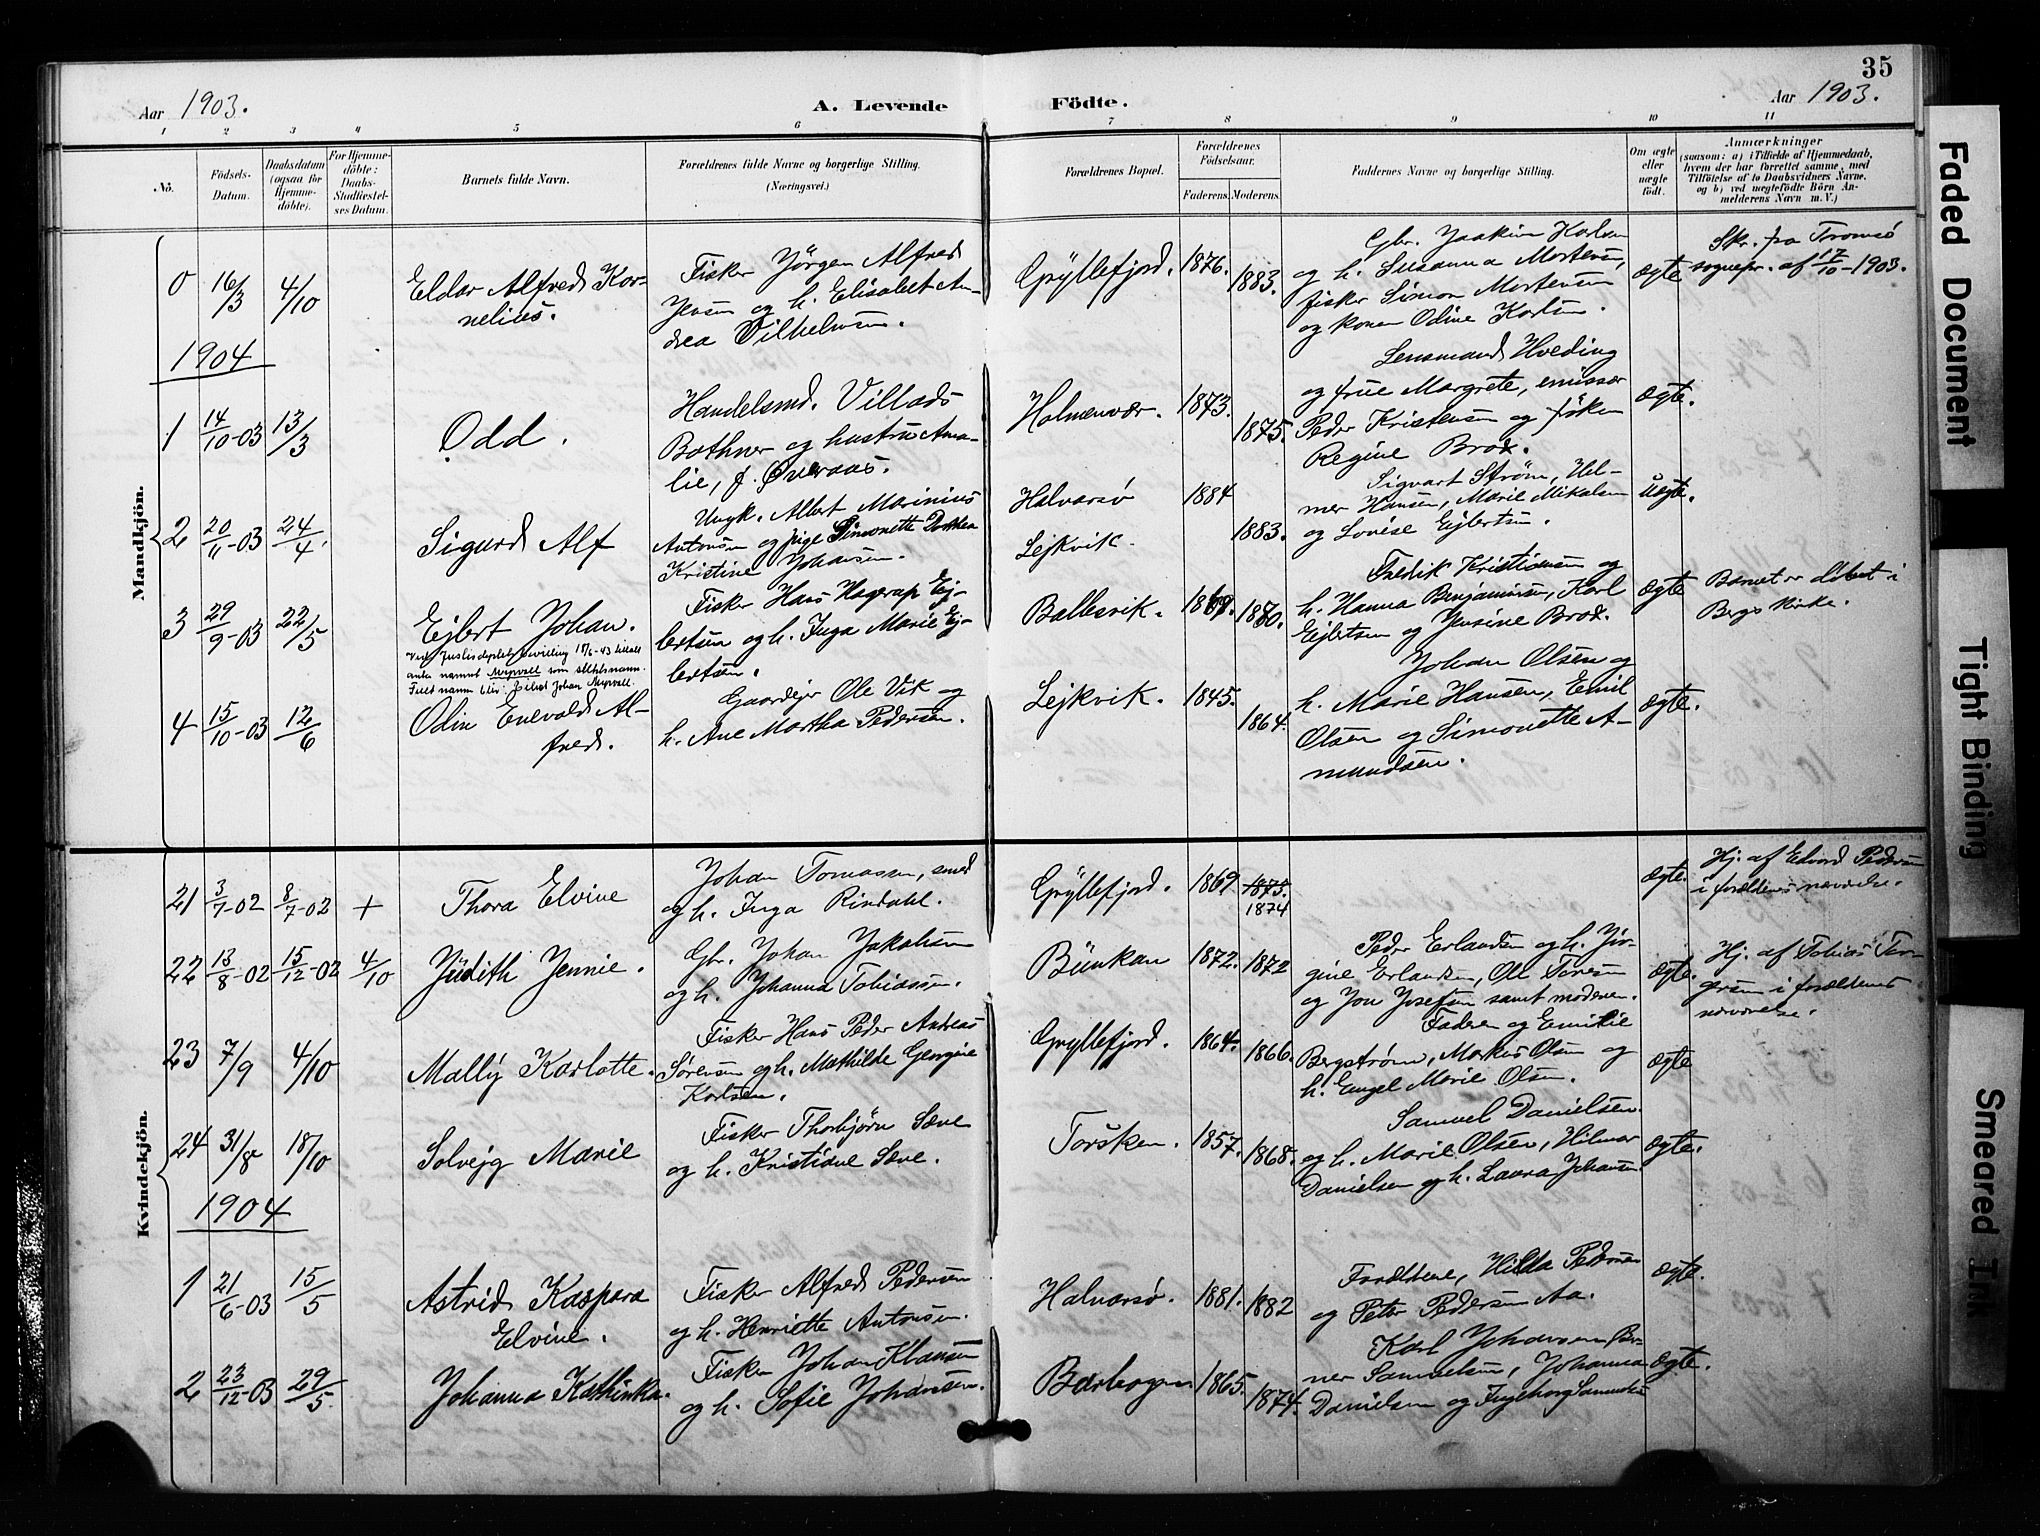 35
Aar 1903.
A. Levende Födte.
Aar 1903.
1 2 3 4 5 6 7 8 9 10 11
No.
Födsels-Datum.
Daabsdatum (ogsaa for Hjemme-döbte).
For Hjemme-döbte: Daabs-Stadfæstel-ses Datum.
Barnets fulde Navn.
Forældrenes fulde Navne og borgerlige Stilling.
(Næringsvei.)
Forældrenes Bopæl.
Forældrenes Födselsaar.
Faderens. Moderens.
Faddernes Navne og borgerlige Stilling.
Om ægte eller uægte födt.
Anmærkninger
(saasom: a) i Tilfælde af Hjemmedaab, hvem der har forrettet samme, med Tilföielse af to Daabsvidners Navne, og b) ved uægtefödte Börn An-melderens Navn m. V.)
Mandkjön.
0 16/3 4/10 Eldar Alfred Kor-
nelius.
Fisker Jörgen Alfred
Jensen og h. Elisabet An-
drea Vilhelmsen.
Gryllefjord. 1876. 1883.
Gbr. Joakim Karlsen
og h. Susanna Mortensen,
fisker Simon Mortensen
og konen Odine Karlsen.
ægte
Skr. fra Tromsö
sognepr. af 17/10-1903.
1904
1 14/10-03 13/3 Odd.
Handelsmd. Villads
Bothner og hustru Ama-
lie, f. Øveraas.
Holmenvær. 1873. 1875.
Lensmand Hveding
og frue Margrete, emissær
Peder Kristensen og fröken
Regine Brox.
ægte.
2 20/11-03 24/4. Sigurd Alf
Ungk. Albert Mainius
Antonsen og pige Simonette Dorthea
Kristine Johansen.
Halvarsö 1884
Lejkvik. 1883.
Sigvart Ström, Hil-
mer Hansen, Marie Mikalsen
og Lovise Ejlertsen.
uægte.
3 29/9-03 22/5 Ejlert Johan.
Ved Justisdeptets bevilling 18/6-43 tillatt
anta navnet Myrvoll som slektsnavn.
Fullt navn blir: Eilert Johan Myrvoll.
Fisker Hans Hagerup Ej-
lertsen og h. Inga Marie Ej-
lertsen.
Ballesvik. 1869. 1880.
Fredrik Kristiansen og
h. Hanna Benjaminsen, Karl
Ejlertsen og Jensine Brox.
ægte
Barnet er döbt i
Bergs kirke.
4 15/10-03 12/6 Odin Enevold Al-
fred.
Gaardejer Ole Vik og
h. Ane Martha Pedersen.
Lejkvik. 1845. 1864.
Johan Olsen og
h. Marie Hansen, Emil
Olsen og Simonette A-
mundsen.
ægte.
Kvindekjön.
21 3/7-02 8/7-02 + Thora Elvine
Johan Tomassen, smed
og h. Inga Rindahl.
Gryllefjord. 1869. 1873.
1874
ægte.
Hj. af Edvard Pedersen
i forældrenes nærværelse.
22 13/8-02 15/12-02 4/10 Judith Jennie.
Gbr. Johan Jakobsen
og h. Johanna Tobiassen.
Bunkan 1872. 1872
Peder Erlandsen og h. Jör-
gine Erlandsen, Ole Toresen
og Jon Josefsen samt moderen.
ægte.
Hj. af Tobias Tor-
gersen i forældrenes
nærværelse.
23 7/9 4/10 Mally Karlotte.
Fisker Hans Peder Andreas
Sörensen og h. Mathilde Georgine
Karlsen.
Gryllefjord. 1864. 1866.
Faderen og Emilie
Bergström, Markus Olsen og
h. Engel Marie Olsen.
ægte
24 31/8 18/10 Solvejg Marie
Fisker Thorbjörn Sæve
og h. Kristiane Sæve.
Torsken. 1857. 1868.
Samuel Danielsen
og h. Marie Olsen, Hilmar
Danielsen og h. Laura Johansen
ægte.
1904
1 21/6-03 15/5 Astrid Kaspara
Elvine.
Fisker Alfred Pedersen
og h. Henriette Antonsen.
Halvarsö. 1881. 1882
Forældrene, Hilda Pedersen
og Peter Pedersen Aa.
ægte.
2 23/12-03 29/5. Johanna Kathinka.
Fisker Johan Klausen
og h. Sofie Johansen.
Barbogen 1865. 1874.
Karl Johansen, Ber-
ner Samuelsen, Johanna
Danielsen og Ingeborg Samuelsen
ægte.
Faded Document
Tight Binding
Smeared Ink